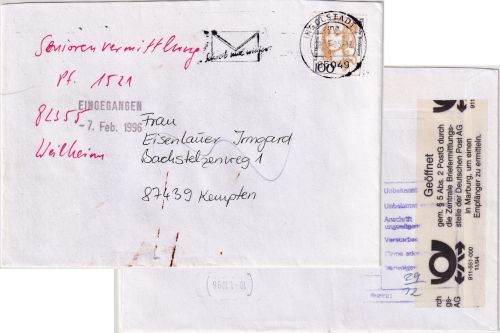 Seniorenvermittlung
Pf. 1521
82355
Weilheim
EINGEGANGEN
-7. Feb. 1996
Schreib mal wieder
INGOLSTADT
85049
100
Frau
Eisenlauer Irmgard
Bachstelzenweg 1
87439 Kempten
Geöffnet
gem. § 5 Abs. 2 PostG durch
die Zentrale Briefermittlungs-
stelle der Deutschen Post AG
in Marburg, um einen
Empfänger zu ermitteln.
911-551-000
11/94
911
rch
gs-
AG
Unbekannt
Unbekannt
Anschrift
ungenügend
Verstorben
29
12